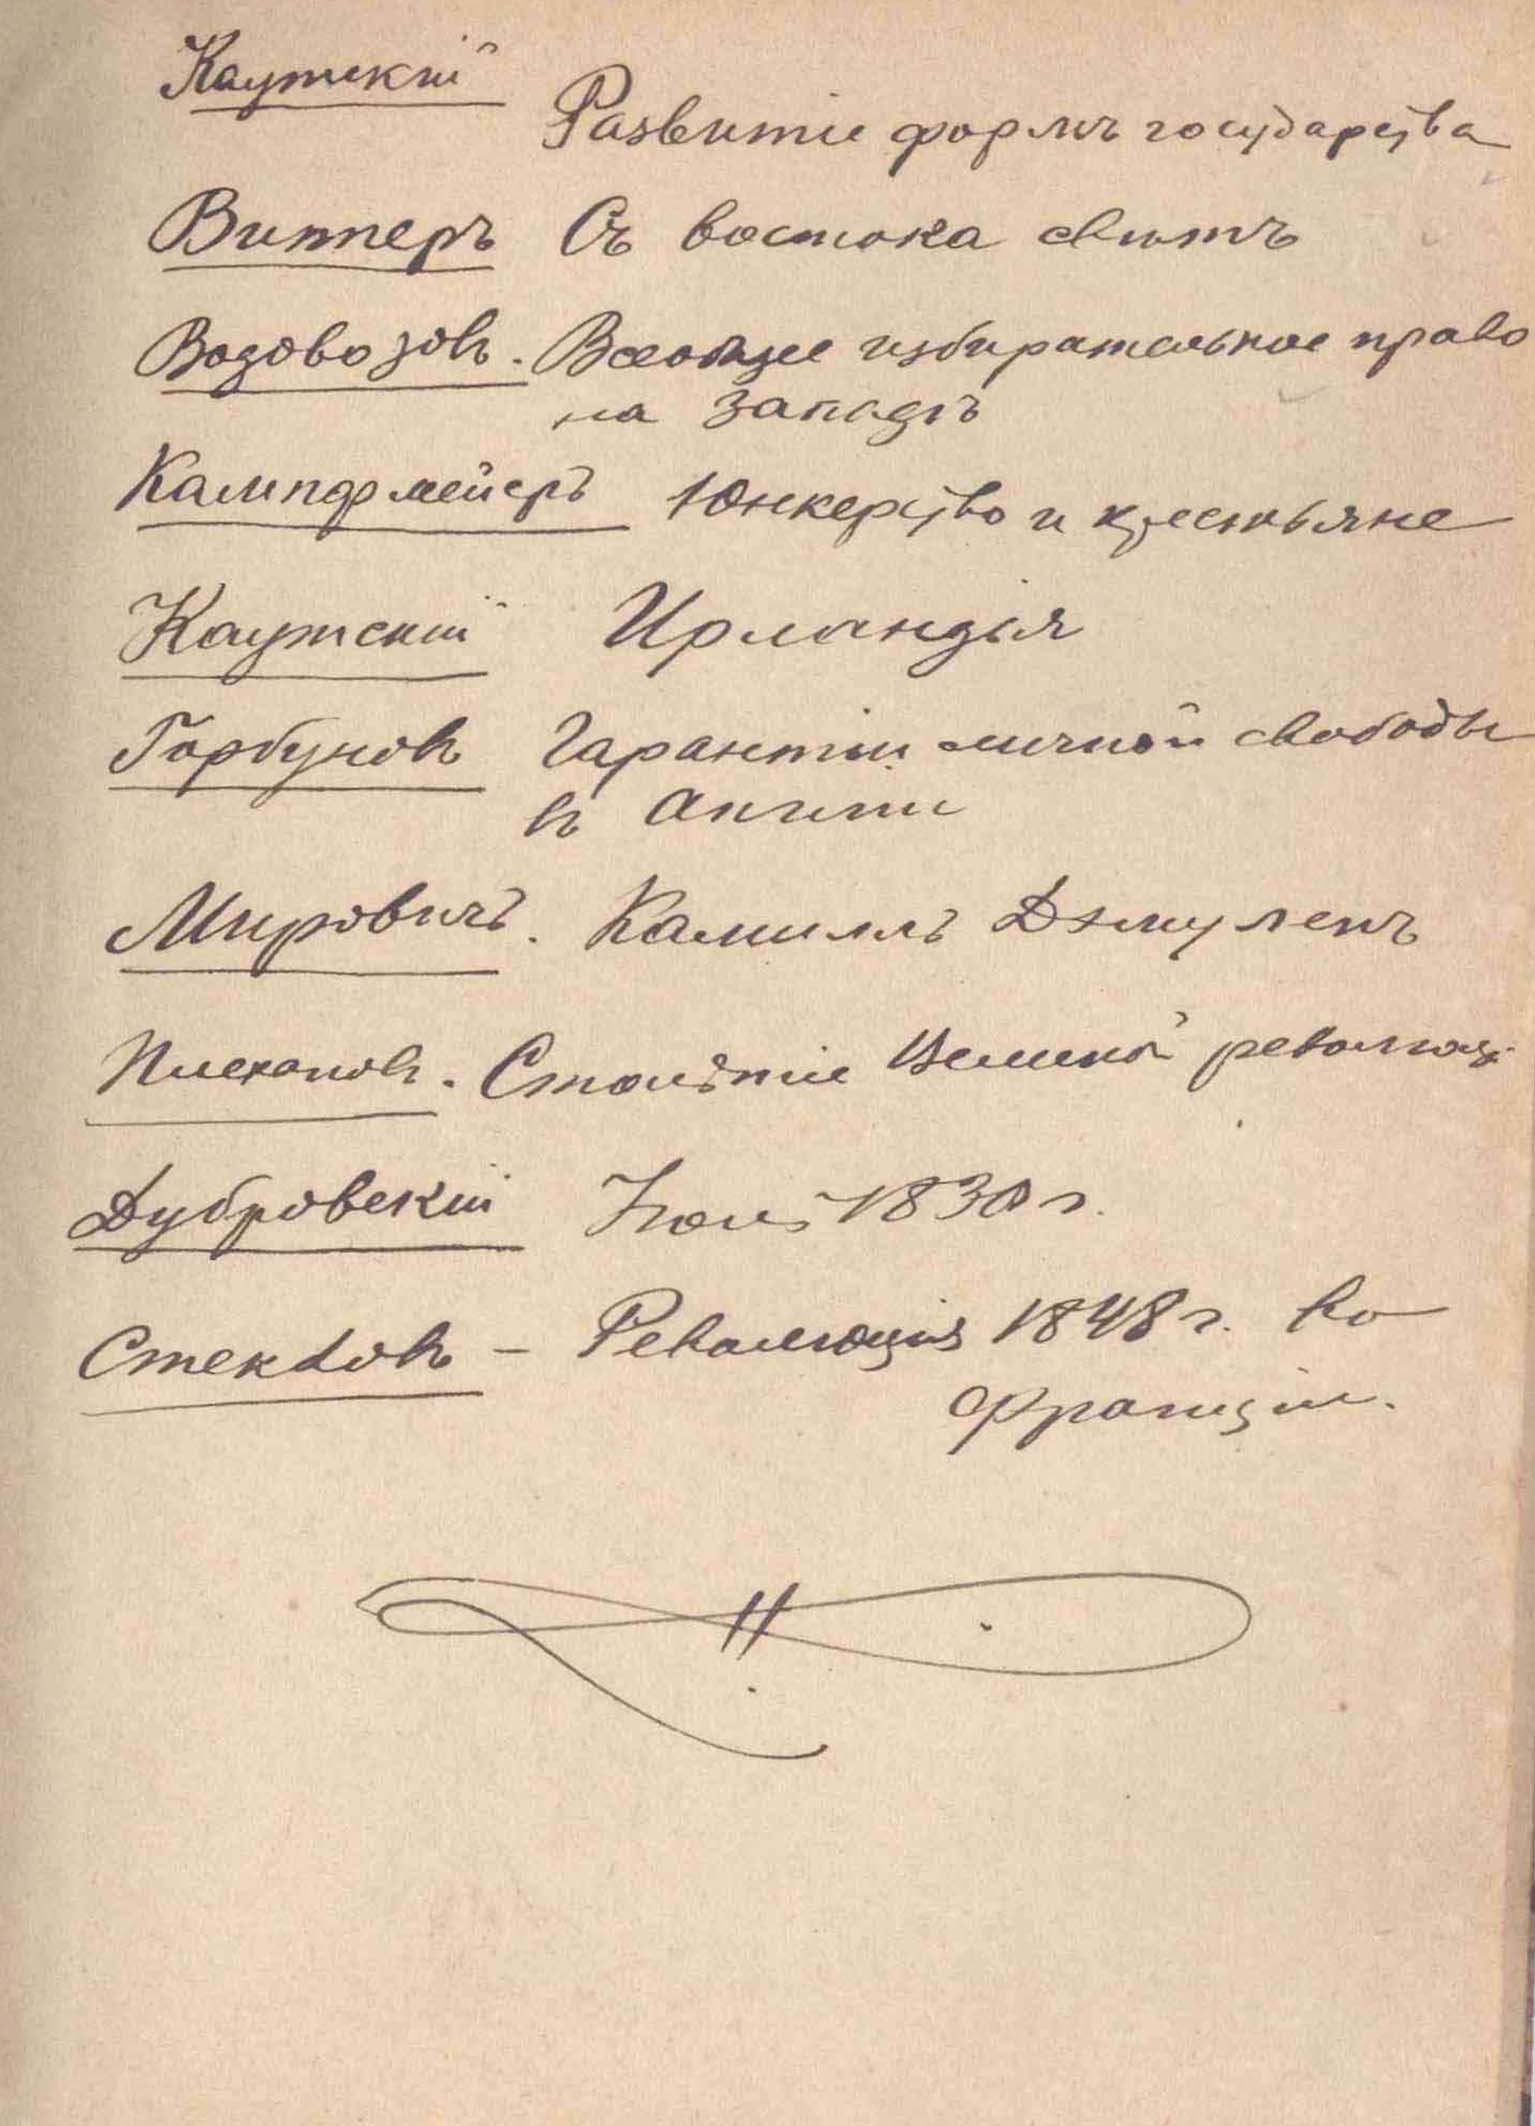 Каутскій
Развитіе формъ государства
Випперъ Съ востока свѣтъ
Водовозовъ. Всеобщее избирательное право
на западѣ
Кампфмейеръ Юнкерство и крестьяне
Каутскій Ирландія
Горбуновъ Гарантіи личной свободы
въ Англіи
Мировичъ. Камиллъ Дэмуленъ
Плехановъ. Столѣтіе Великой революц.
Дубровскій 1830 г.
Стекловъ – Революція 1848 г. во
Франціи.